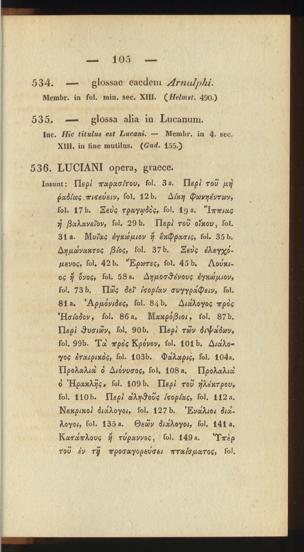 — 105 —
534. — glossae eaedem Arnulphi.
Membr. in fol. min. sec. XIII. (Helmst. 490.)
535. — glossa alia in Lucanum.
Inc. Hic titulus est Lucani. — Membr. in 4. sec.
XIII. in fine mutilus. (Gud. 155.)
536. LUCIANI opera, graece.
Insunt: Περὶ παρασίτου, fol. 3 a. Περὶ τοῦ μὴ
ῥᾳδίως πιςεύειν, fol. 12 b. Δίκη φωνηέντων,
fol. 17 b. Ζεὺς τραγῳδὸς, fol. 19 a. Ἱππίας
ἢ βαλανεῖον, fol. 29 b. Περὶ τοῦ οἴκου, fol.
31 a. Μυΐας ἐγκώμιον ἢ ἔκφρασις, fol. 35 b.
Δημώνακτος βίος, fol. 37 b. Ζεὺς ἐλεγχό-
μενος, fol. 42 b. Ἔρωτες, fol. 45 b. Λούκι-
ος ἢ ὄνος, fol. 58 a. Δημοσθένους ἐγκώμιον,
fol. 73 b. Πῶς δεῖ ἱςορίαν συγγράφειν, fol.
81 a. Ἁρμόνιδες, fol. 84 b. Διάλογος πρὸς
Ἡσίοδον, fol. 86 a. Μακρόβιοι, fol. 87 b.
Περὶ θυσιῶν, fol. 90 b. Περὶ τῶν διψάδων,
fol. 99 b. Τὰ πρὸς Κρόνον, fol. 101 b. Διάλο-
γος ἑταιρικὸς, fol. 103 b. Φάλαρις, fol. 104 a.
Προλαλιὰ ὁ Διόνυσος, fol. 108 a. Προλαλιὰ
ὁ Ἡρακλῆς, fol. 109 b. Περὶ τοῦ ἠλέκτρου,
fol. 110 b. Περὶ ἀληθοῦς ἱςορίας, fol. 112 a.
Νεκρικοὶ διάλογοι, fol. 127 b. Ἐνάλιοι διά-
λογοι, fol. 135 a. Θεῶν διάλογοι, fol. 141 a.
Κατάπλους ἢ τύραννος, fol. 149 a. Ὑπὲρ
τοῦ ἐν τῇ προσαγορεύσει πταίσματος, fol.